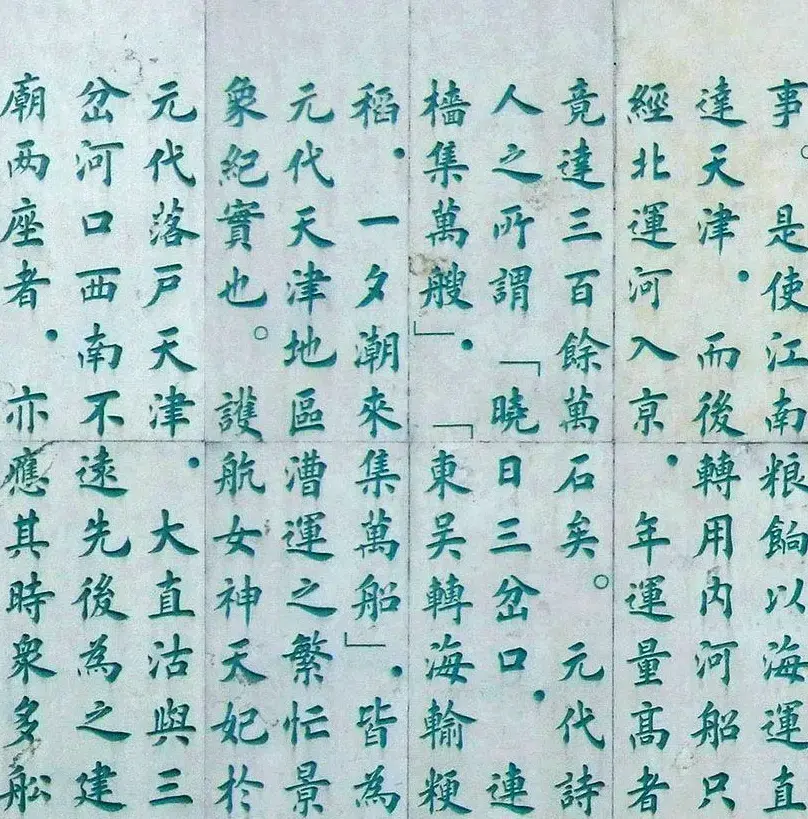 事。是使江南粮餉以海運直
達天津．而後轉用内河船只
經北運河入京．年運量高者
竟達三百餘萬石矣。元代詩
人之所謂「曉日三岔口．連
檣集萬艘」．「東吴轉海輸粳
稻．一夕潮來集萬船」．皆為
元代天津地區漕運之繁忙景
象紀實也。護航女神天妃於
元代落戸天津．大直沽與三
岔河口西南不遠先後為之建
廟两座者．亦應其時衆多船